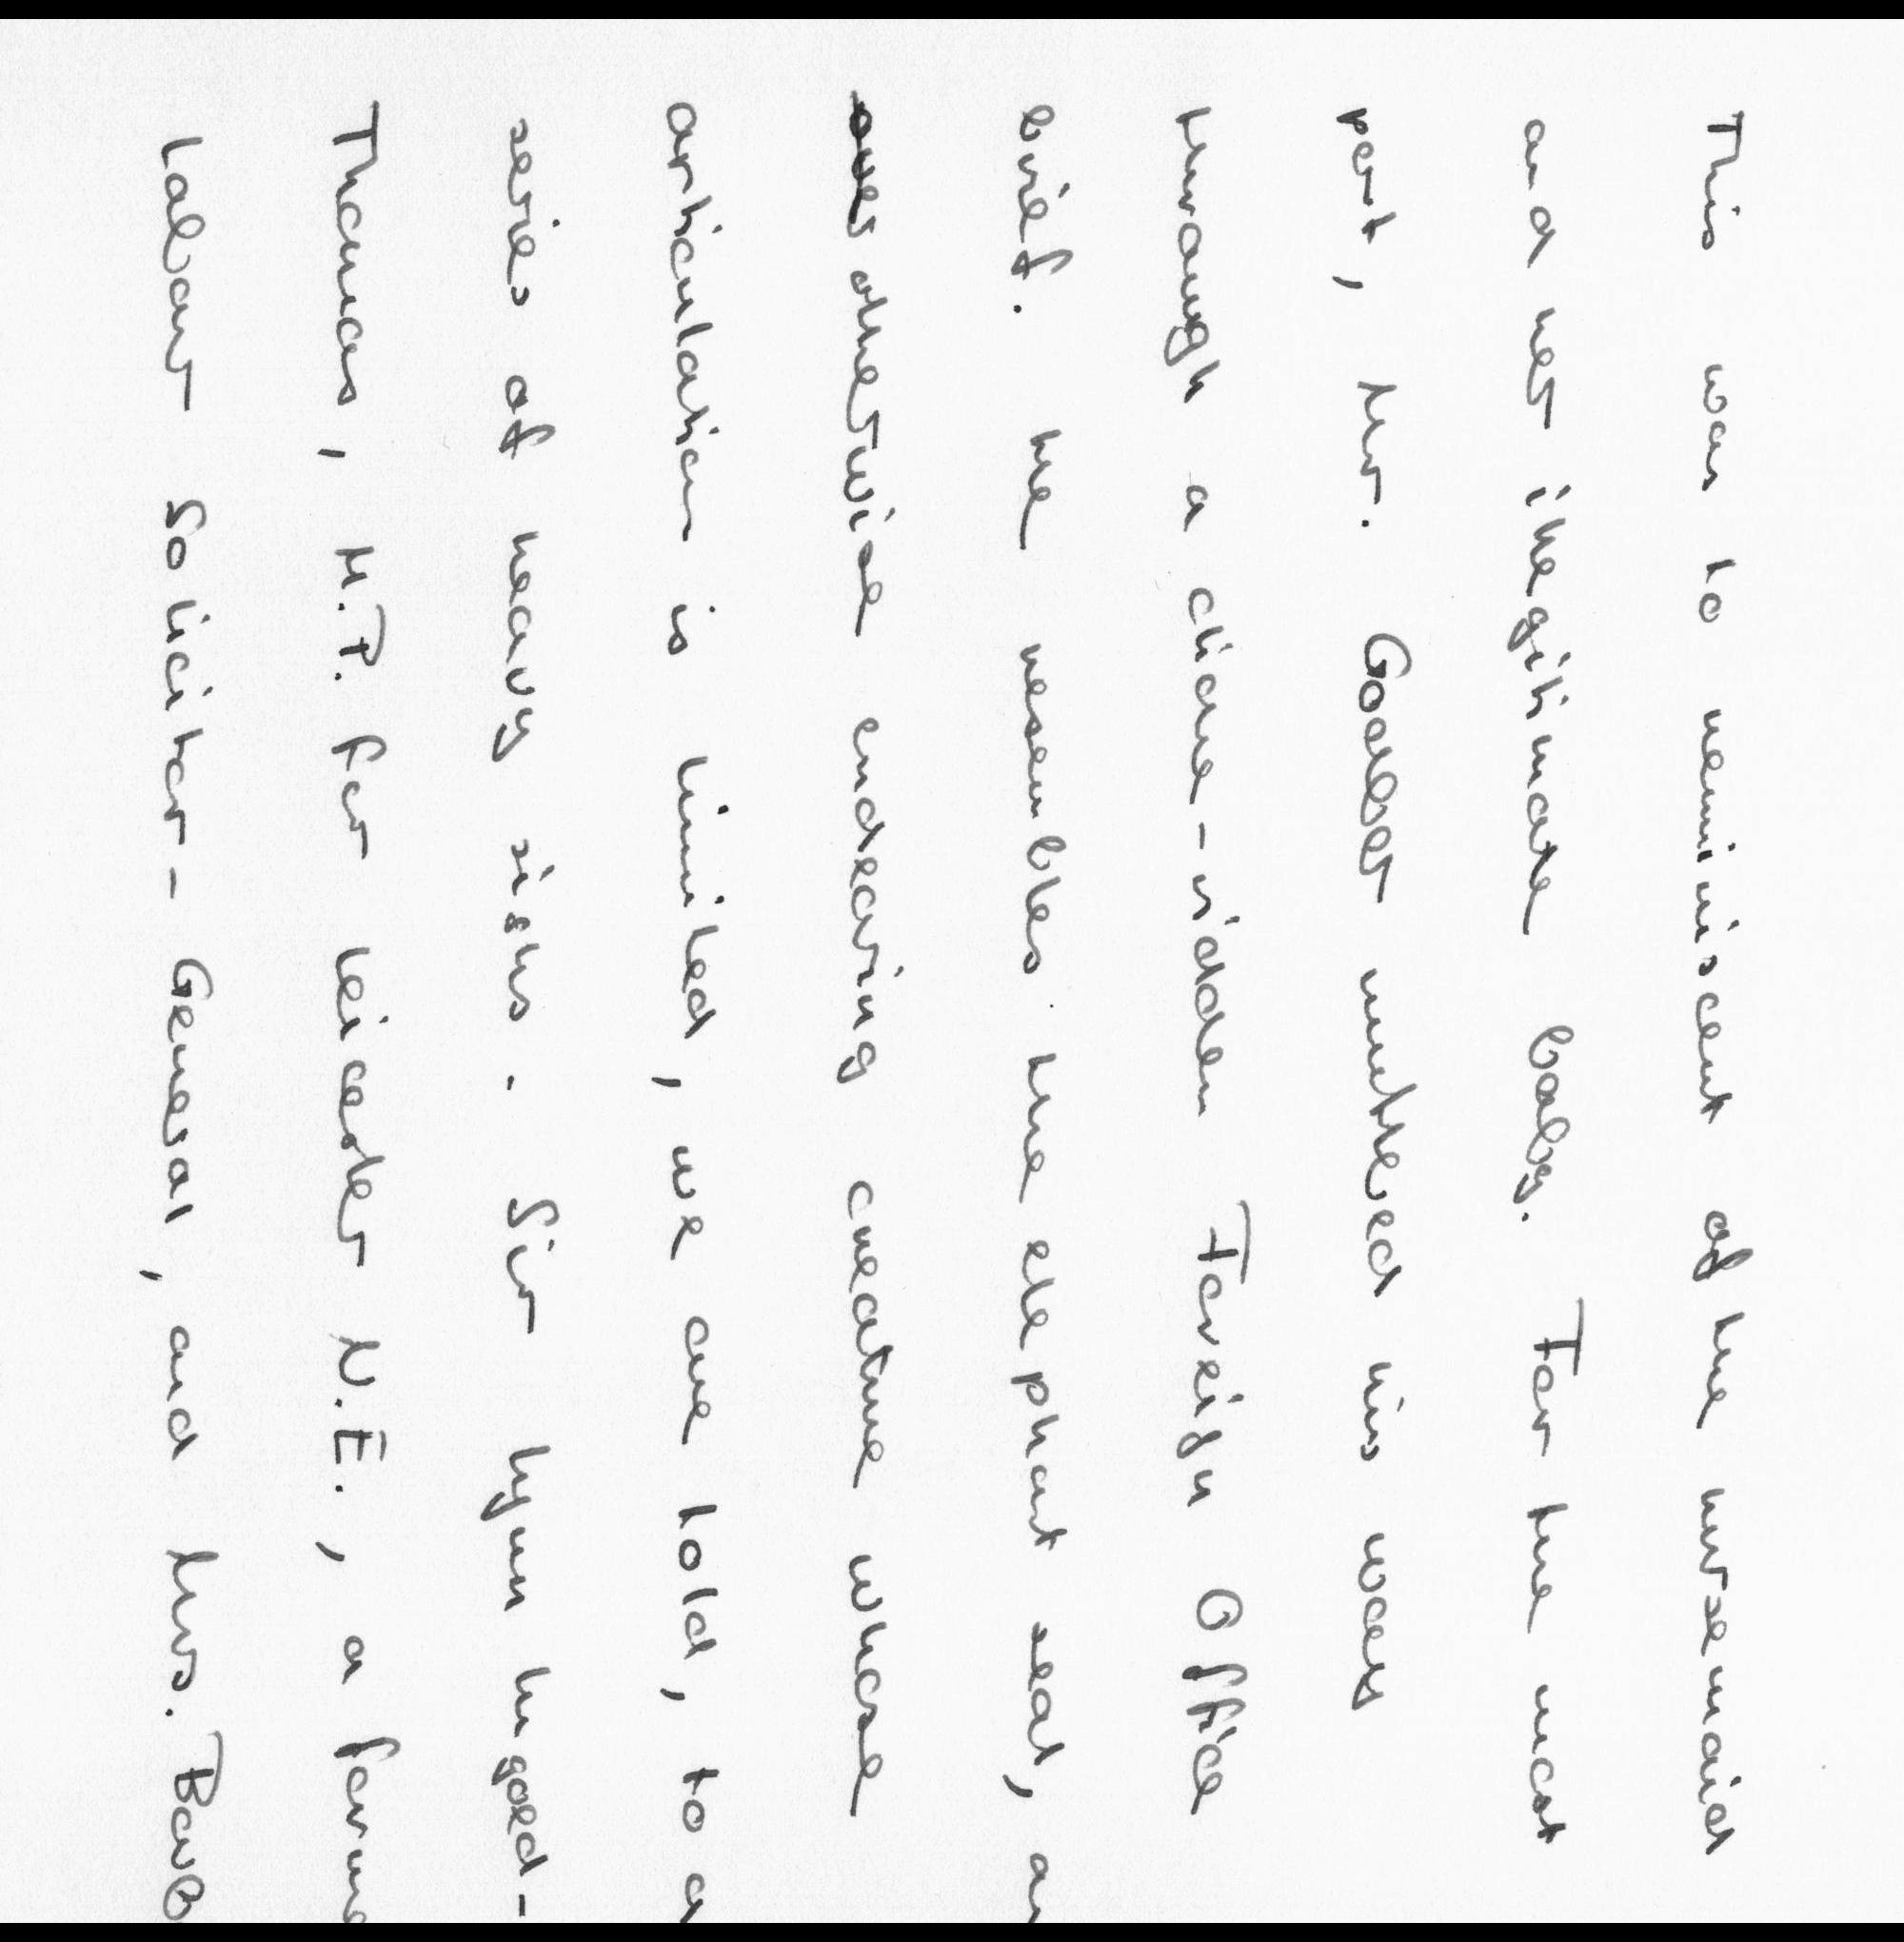 This was to reminiscent of the nursemaid
and her illegitimate baby. For the most
part, Mr. Goaber muttered his way
through a cliché-ridden Foreign Office
brief. He resembles the elephant seal, an
otherwise endearing creature whose
articulation is limited, we are told, to a
series of heavy sighs. Sir Lynn Ungoed-
Thomas, M.P. for Leicester N.E., a forme
Labour Solicitor-General, and Mrs. Barb